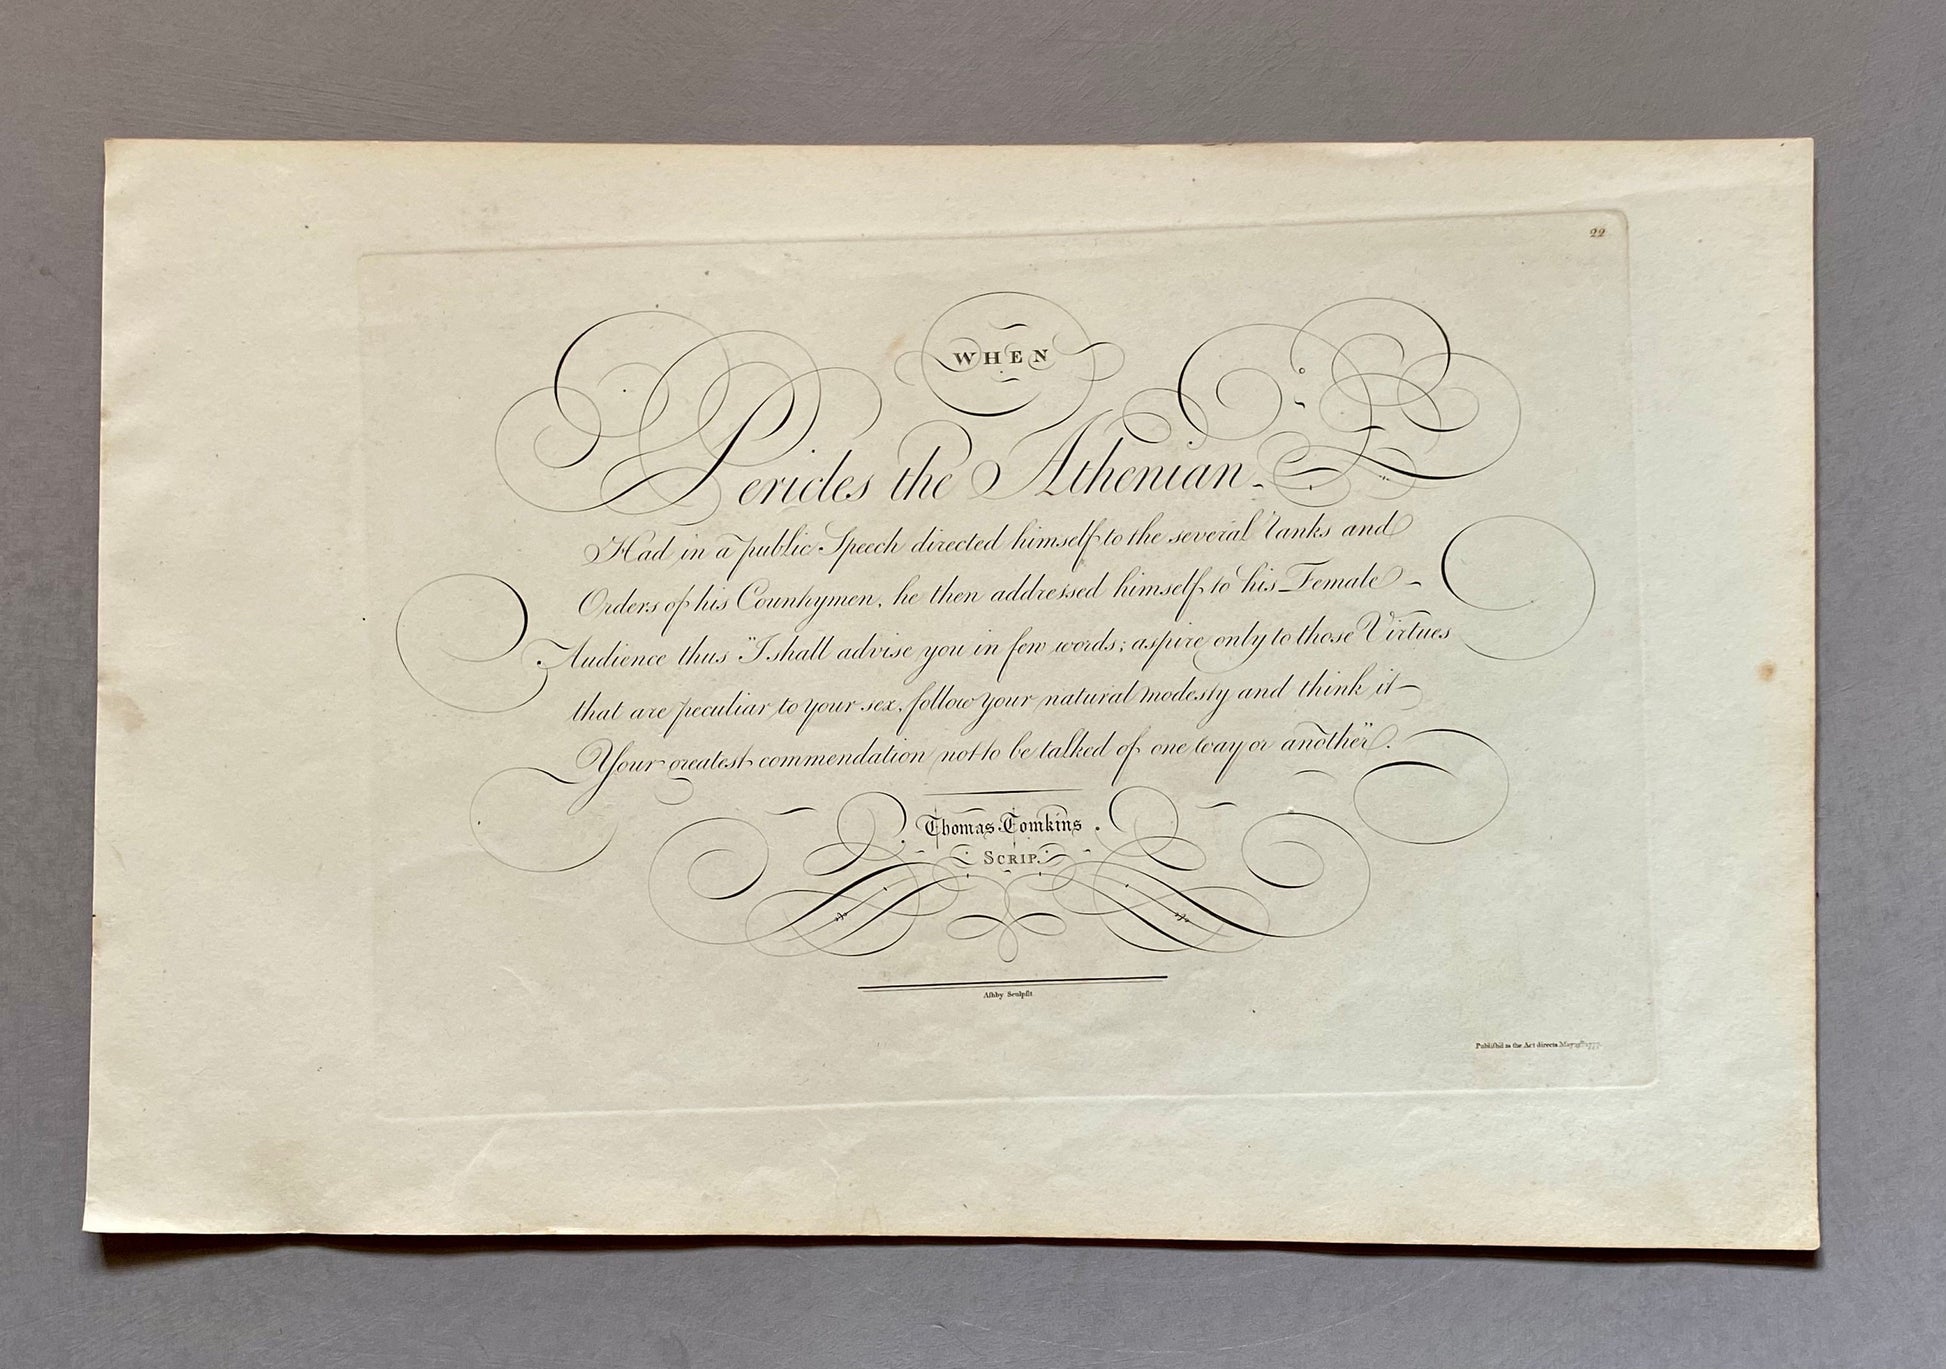 22
WHEN
Pericles the Athenian
Had in a public Speech directed himself to the several ranks and
Orders of his Countrymen, he then addressed himself to his Female
Audience thus "I shall advise you in few words; aspire only to those Virtues
that are peculiar to your sex, follow your natural modesty and think it
Your greatest commendation not to be talked of one way or another".
Thomas Tomkins.
SCRIP.
Aſhby Sculpſit
Publiſh'd as the Act directs May